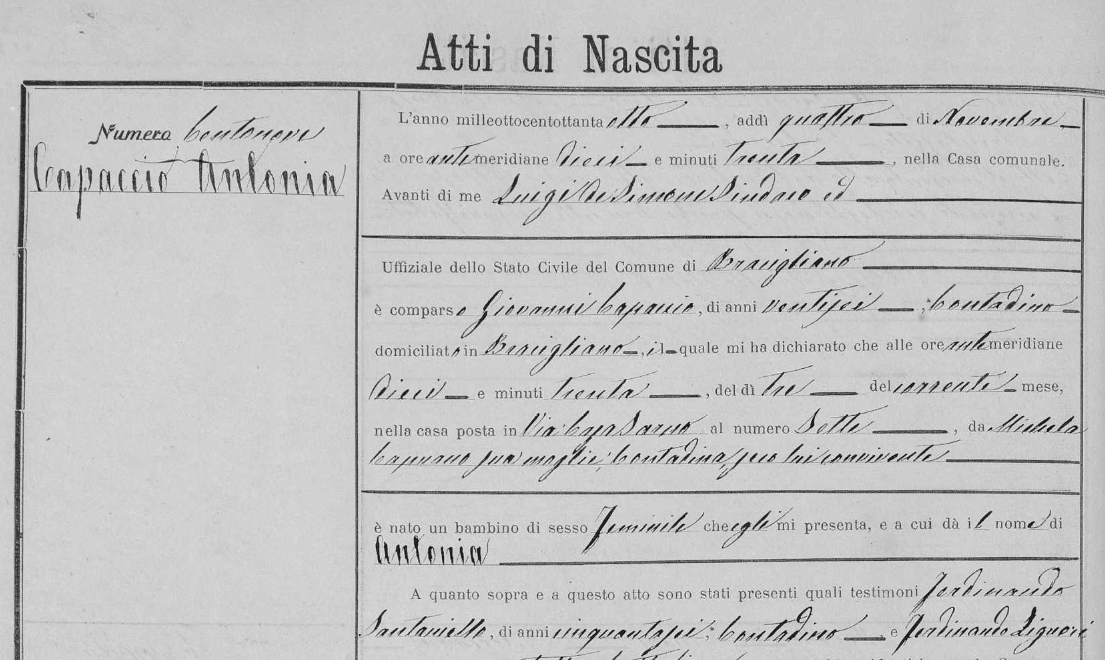 Atti di Nascita
Numero centonove
Capaccio Antonia
L'anno milleottocentottanta otto, addì quattro di Novembre
a ore antemeridiane dieci e minuti trenta, nella Casa comunale.
Avanti di me Luigi De Simone Sindaco ed
Uffiziale dello Stato Civile del Comune di Bracigliano
è comparso Giovanni Capaccio, di anni ventisei, contadino
domiciliato in Bracigliano, il quale mi ha dichiarato che alle ore antemeridiane
dieci e minuti trenta, del dì tre del corrente mese,
nella casa posta in Via Casa Sarno al numero Sette, da Michela
Capuano sua moglie, contadina, seco lui convivente
è nato un bambino di sesso feminile che egli mi presenta, e a cui dà il nome di
Antonia
A quanto sopra e a questo atto sono stati presenti quali testimoni Ferdinando
Santaniello, di anni cinquantasei, contadino e Ferdinando Liguori